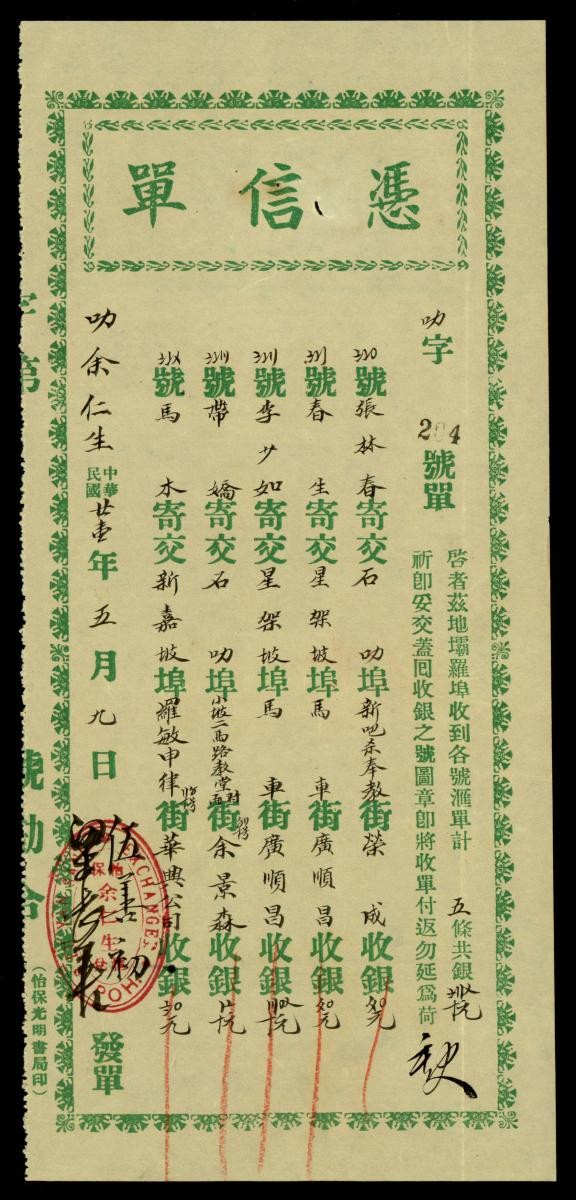 憑信單
叻字 204 號單
啓者茲地壩羅埠收到各號滙單計 五 條共銀
祈卽妥交蓋囘收銀之號圖章卽將收單付返勿延爲荷
號張林春寄交石叻埠新吧殺奉教街榮成收銀
號春生寄交星架坡埠馬車街廣順昌收銀
號李少如寄交星架坡埠馬車街廣順昌收銀
號帶嬌寄交石叻埠小坡二馬路教堂對面街余景森收銀
號馬水寄交新嘉坡埠羅敏申律街華興公司收銀
叻余仁生 中華民國廿壹年五月九日
伍善初
發單
怡保
余仁生
EXCHANGES
IPOH
字第 號 叻 合
(怡保光明書局印)